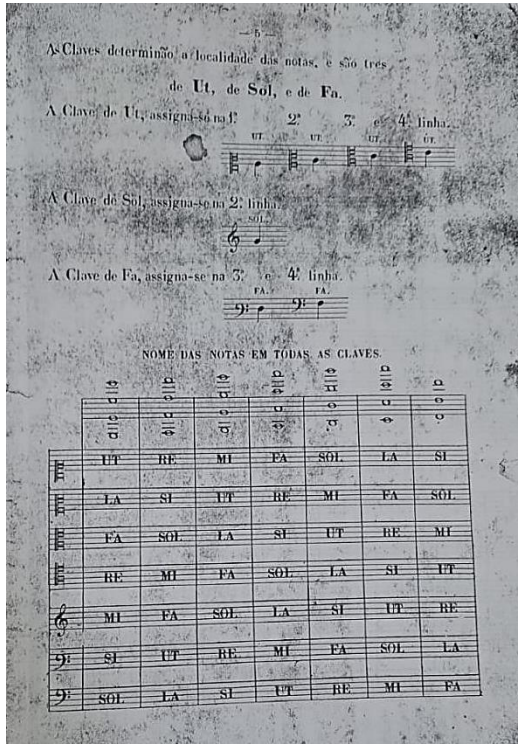 — 5 —
As Claves determinão a localidade das notas, e são tres
de Ut, de Sol, e de Fa.
A Clave de Ut, assigna-se na 1ª 2ª 3ª e 4ª linha.
UT. UT. UT. UT.
A Clave de Sol, assigna-se na 2ª linha.
SOL.
A Clave de Fa, assigna-se na 3ª e 4ª linha.
FA. FA.
NOME DAS NOTAS EM TODAS AS CLAVES.
UT RE MI FA SOL LA SI
LA SI UT RE MI FA SOL
FA SOL LA SI UT RE MI
RE MI FA SOL LA SI UT
MI FA SOL LA SI UT RE
SI UT RE MI FA SOL LA
SOL LA SI UT RE MI FA